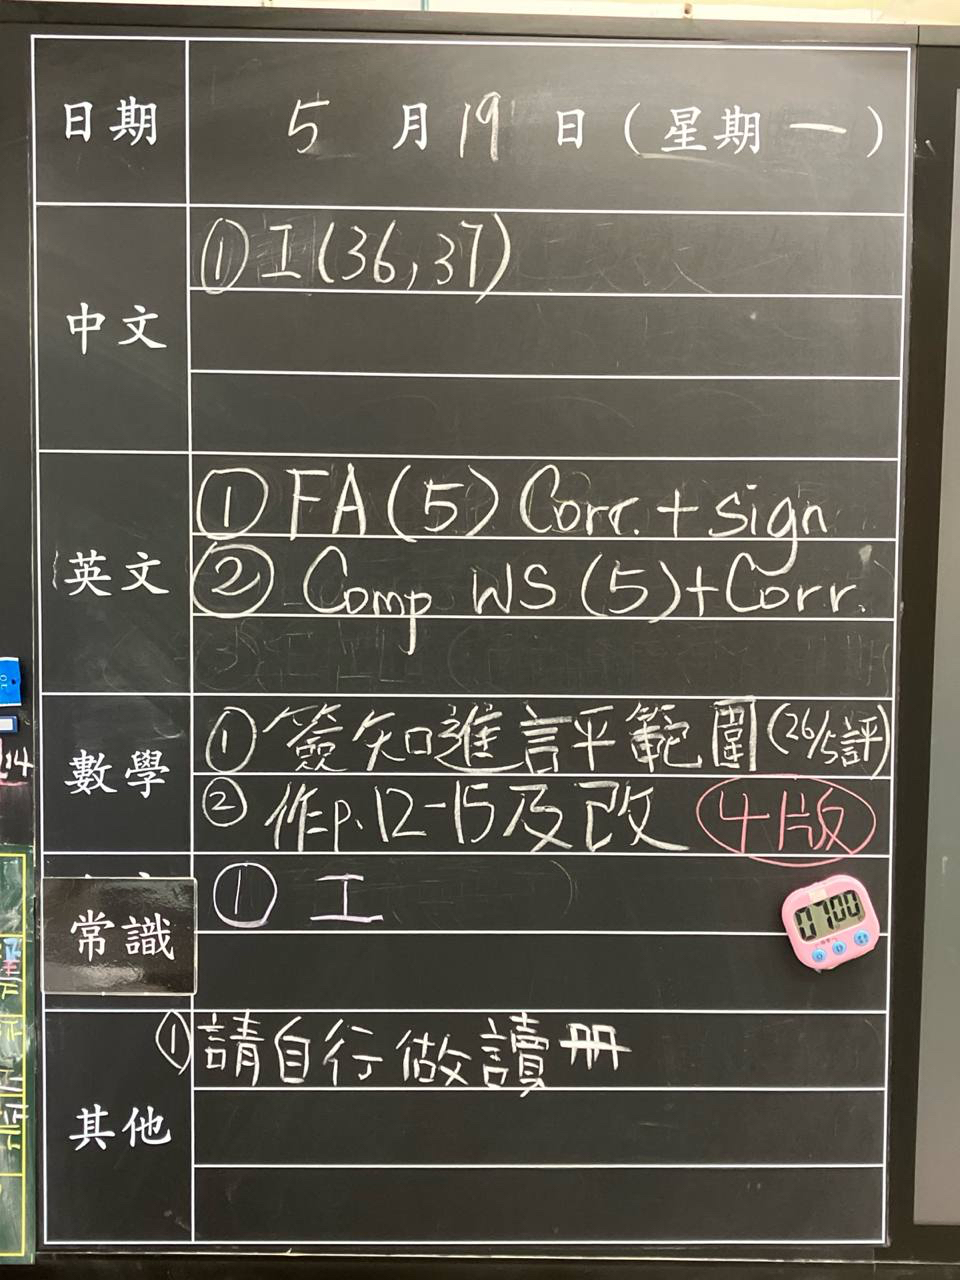 日期 5 月 19 日 (星期一)
中文
① 工(36,37)
英文
① FA(5) Corr. + sign
② Comp WS (5)+Corr.
數學
① 簽知進評範圍(26/5評)
② 作p.12-15及改 4版
常識
① 工
0700
其他
① 請自行做讀冊